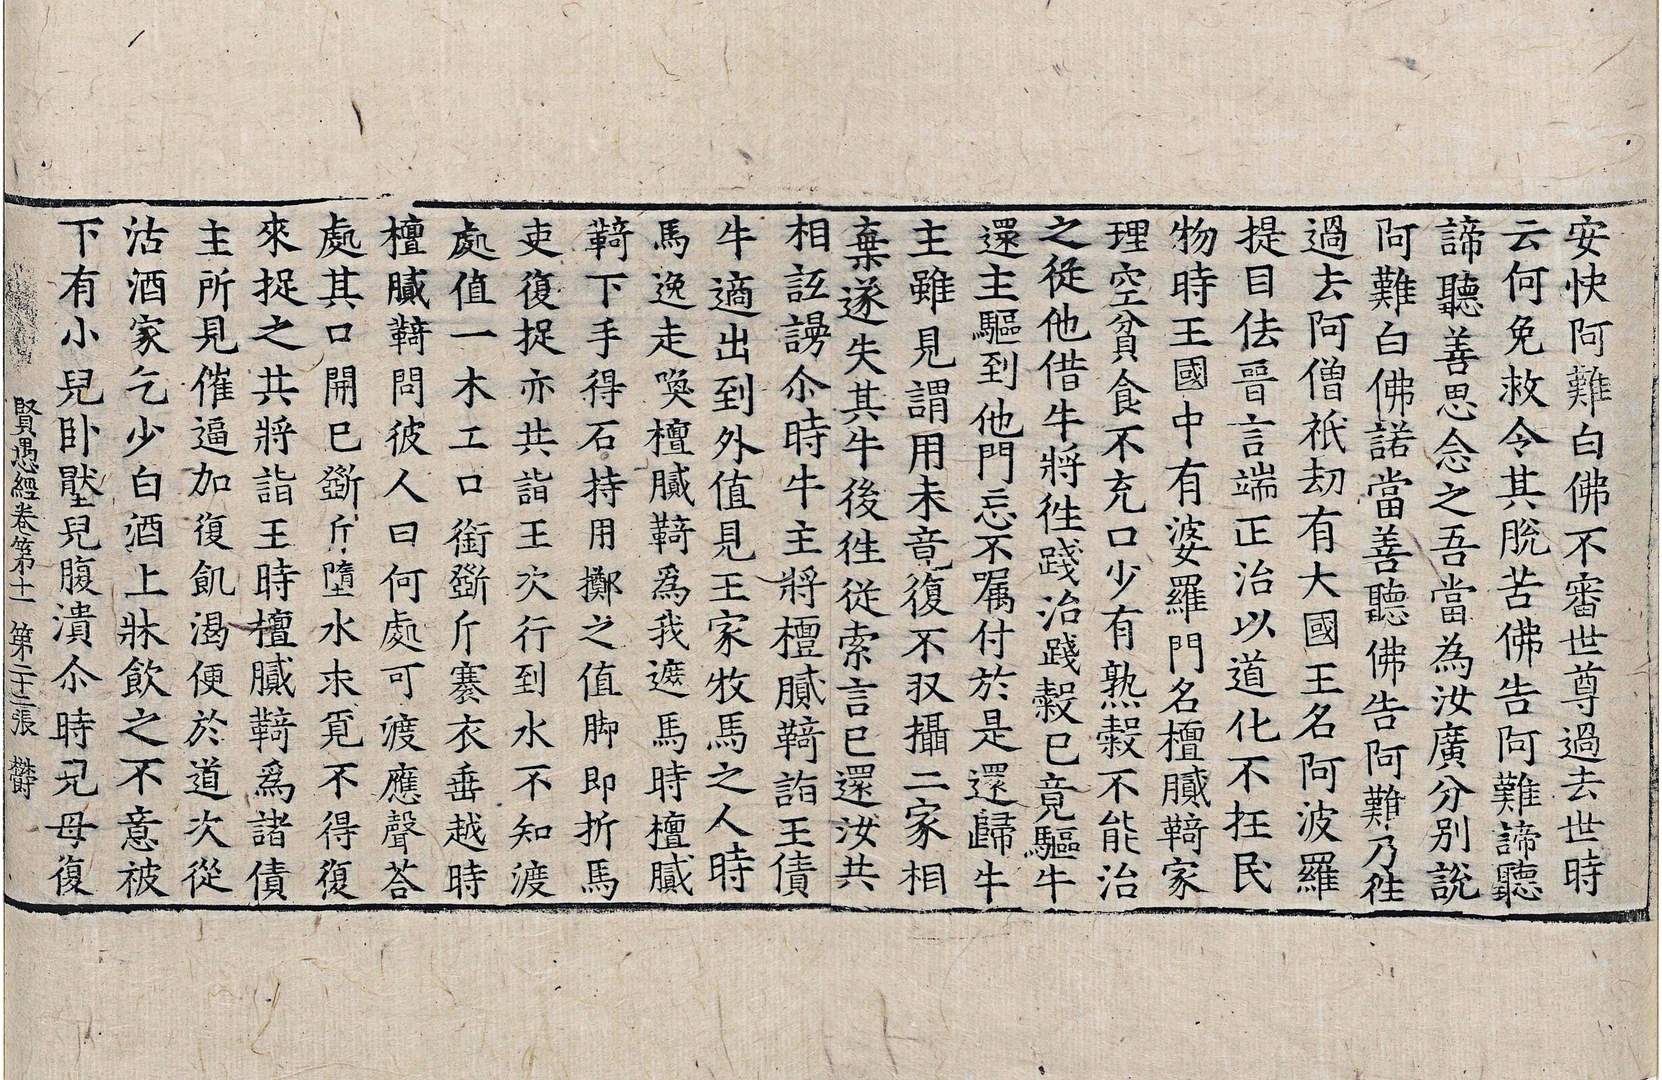 安快阿難白佛不審世尊過去世時
云何免救令其脫苦佛告阿難諦聽
諦聽善思念之吾當為汝廣分別說
阿難白佛諾當善聽佛告阿難乃徃
過去阿僧祇劫有大國王名阿波羅
提目佉晉言端正治以道化不抂民
物時王國中有婆羅門名檀膩䩭家
理空貧食不充口少有熟穀不能治
之從他借牛將徃踐治踐穀已竟驅牛
還主驅到他門忘不囑付於是還歸牛
主雖見謂用未竟復不収攝二家相
棄遂失其牛後徃從索言已還汝共
相詆謾尒時牛主將檀膩䩭詣王債
牛適出到外值見王家牧馬之人時
馬逸走喚檀膩䩭為我遮馬時檀膩
䩭下手得石持用擲之值脚即折馬
吏復捉亦共詣王次行到水不知渡
處值一木工口銜斲斤褰衣垂越時
檀膩䩭問彼人曰何處可渡應聲荅
處其口開已斲斤墮水求覓不得復
來捉之共將詣王時檀膩䩭為諸債
主所見催逼加復飢渴便於道次從
沽酒家乞少白酒上牀飲之不意被
下有小兒卧壓兒腹潰尒時兒母復
賢愚經卷第十一 第二十三張 欝